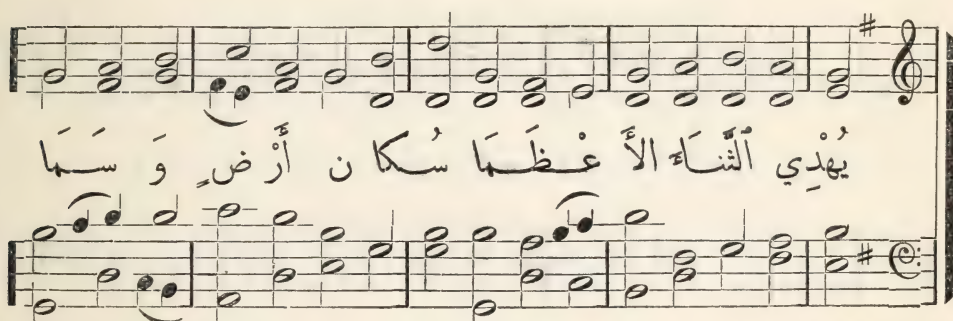 يُهْدِي ٱلثَّنَاءَ الأَّ عْـظَـمَا سُـكا ن أَرْ ضٍ وَ سَـمَا